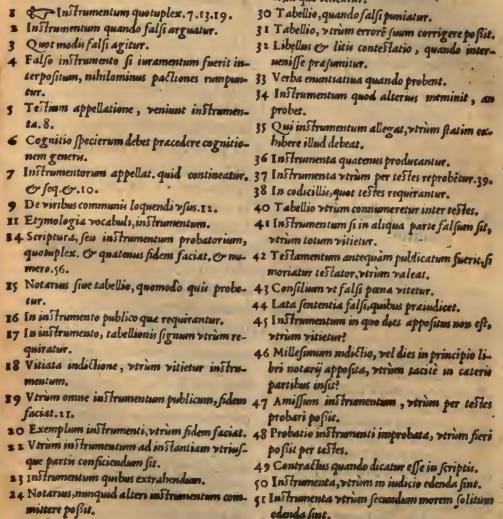 1 Instrumentum quotuplex. 7.13.19.
2 Instrumentum quando falsi arguatur.
3 Quot modis falsi agitur.
4 Falso instrumento si iuramentum fuerit in-
terpositum, nihilominus pactiones rumpun-
tur.
5 Testium appellatione, veniunt instrumen-
ta.8.
6 Cognitio specierum debet præcedere cognitio-
nem generis.
7 Instrumentorum appellat. quid contineatur.
& seq.&.10.
9 De viribus communis loquendi vsus.12.
11 Etymologia vocabuli, instrumentum.
14 Scriptura, seu instrumentum probatorium,
quotuplex. & quatenus fidem faciat. & nu-
mero.56.
15 Notarius siue tabellio, quomodo quis probe-
tur.
16 In instrumento publico que requirantur.
17 In instrumento, tabellionis signum vtrùm re-
quiratur.
18 Vitiata indictione, vtrùm vitietur instru-
mentum.
19 Vtrùm omne instrumentum publicum, fidem
faciat.21.
20 Exemplum instrumenti, vtrùm fidem faciat.
22 Vtrùm instrumentum ad instantiam vtrius-
que partis conficiendum sit.
23 Instrumentum quibus extrahendum.
24 Notarius, nunquid alteri instrumentum com-
mittere possit.
30 Tabellio, quando falsi puniatur.
31 Tabellio, vtrùm errorē suum corrigere possit.
32 Libellus & litis contestatio, quando inter-
uenisse præsumitur.
33 Verba enuntiatiua quando probent.
34 Instrumentum quod alterius meminit, an
probet.
35 Qui instrumentum allegat, vtrùm statim ex-
hibere illud debeat.
36 Instrumenta quatenus producantur.
37 Instrumentum vtrùm per testes reprobētur.39.
38 In codicillis, quot testes requirantur.
40 Tabellio vtrùm connumeretur inter testes.
41 Instrumentum si in aliqua parte falsum sit,
vtrùm totum vitietur.
42 Testamentum antequàm publicatum fuerit, si
moriatur testator, vtrùm valeat.
43 Consilium vt falsi pœna vitetur.
44 Lata sententia falsi, quibus præiudicet.
45 Instrumentum in quo dies appositus non est,
vtrùm vitietur?
46 Millesimum indictio, vel dies in principio li-
bri notarij apposita, vtrùm tacitè in cæteris
partibus insit?
47 Amissum instrumentum, vtrùm per testes
probari possit.
48 Probatio instrumenti improbata, vtrùm fieri
possit per testes.
49 Contractus quando dicatur esse in scriptis.
50 Instrumenta, vtrùm in iudicio edenda sint.
51 Instrumenta vtrùm secundùm morem solitum
edenda sint.